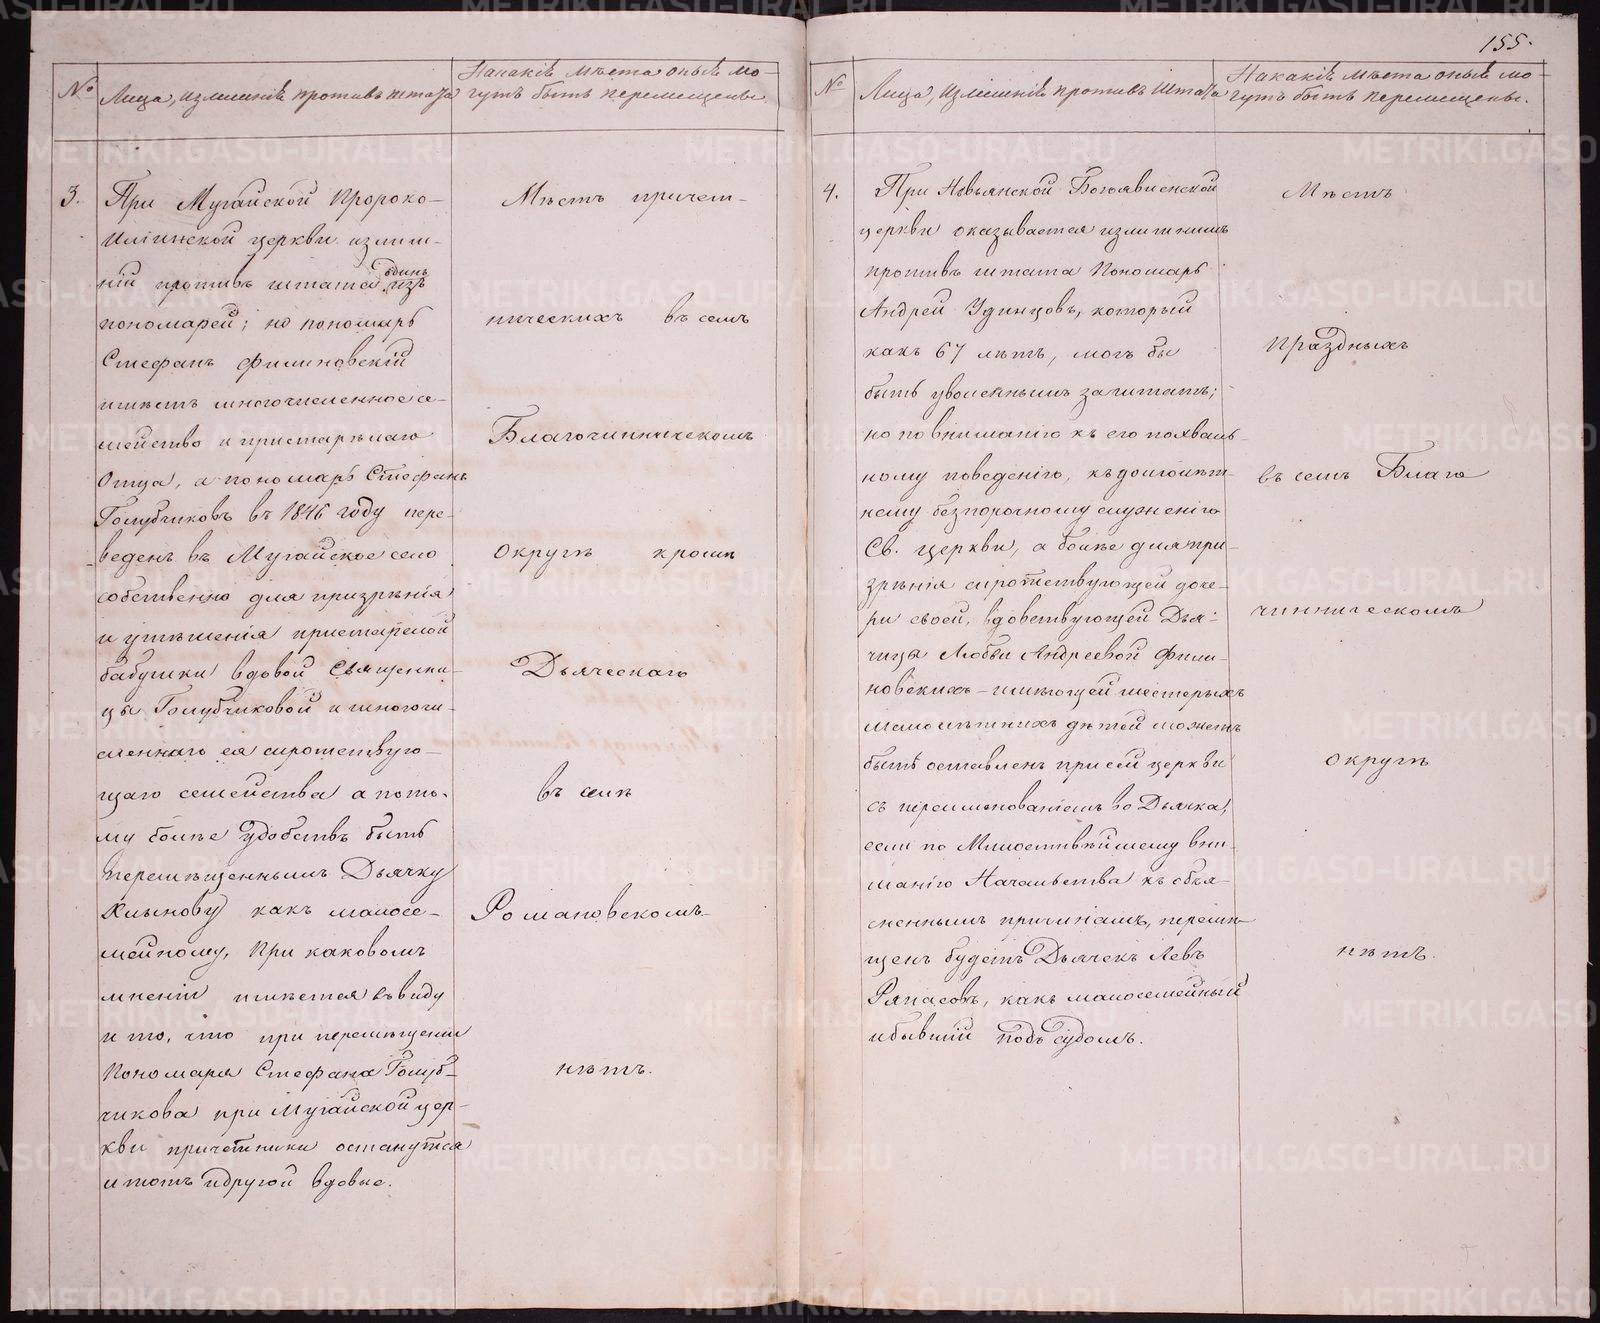 №
Лица, излишнiе противъ штата
На какiе мѣста оныѣ мо-
гутъ быть перемещены.
3.
При Мугайской Пророко-
Илiинской церкви излиш-
нiй противъ штата одинъ изъ
пономарей; но пономарь
Стефанъ Филиновскiй
имѣетъ многочисленное се-
мейство и пристарѣлаго
Отца, а пономарь Стефанъ
Голубчиковъ въ 1846 году пере-
веденъ въ Мугайское село
собственно для призрѣнiя
и утѣшенiя пристарелой
бабушки вдовой Священни-
цы Голубчиковой и многочи-
сленнаго ея сиротствую-
щаго семейства а пото-
му болѣе удобствъ быть
перемѣщеннымъ Дьячку
Клынову какъ малосе-
мейному, При каковомъ
мненiи имѣется въ виду
и то, что при перемѣщенiи
Пономаря Стефана Голуб-
чикова при Мугайской цер-
кви причетники останутся
и тотъ и другой вдовые.
Мѣстъ причет-
ническихъ въ семъ
Благочинническомъ
Округѣ кромѣ
Дьяческаго
въ селѣ
Романовскомъ
нѣтъ.
155.
№
Лица, излишнiе противъ штата
На какiе мѣста оныѣ мо-
гутъ быть перемещены.
4.
При Невьянской Богоявленской
церкви оказывается излишнимъ
противъ штата Пономарь
Андрей Удинцовъ, который
какъ 67 лѣтъ, могъ бы
быть уволеннымъ за штатъ;
но по вниманiю къ его похваль-
ному поведенiю, къ долголѣт-
нему безпорочному служенiю
Св. церкви, а болѣе для при-
зрѣнiя сиротствующей доче-
ри своей, вдовствующей Дья-
чицы Любви Андреевой Фили-
новскихъ - имѣющей шестерыхъ
малолѣтнихъ дѣтей можетъ
быть оставленъ при сей церкви
съ переименованiемъ во Дьячка,
если по Милостивѣйшему вни-
манiю Начальства къ объя-
сненнымъ причинамъ, перемѣ-
щенъ будетъ Дьячекъ Левъ
Ряпасовъ, какъ малосемейный
и бывшiй подъ судомъ.
Мѣстъ
праздныхъ
въ семъ Благо
чинническомъ
округѣ
нѣтъ.